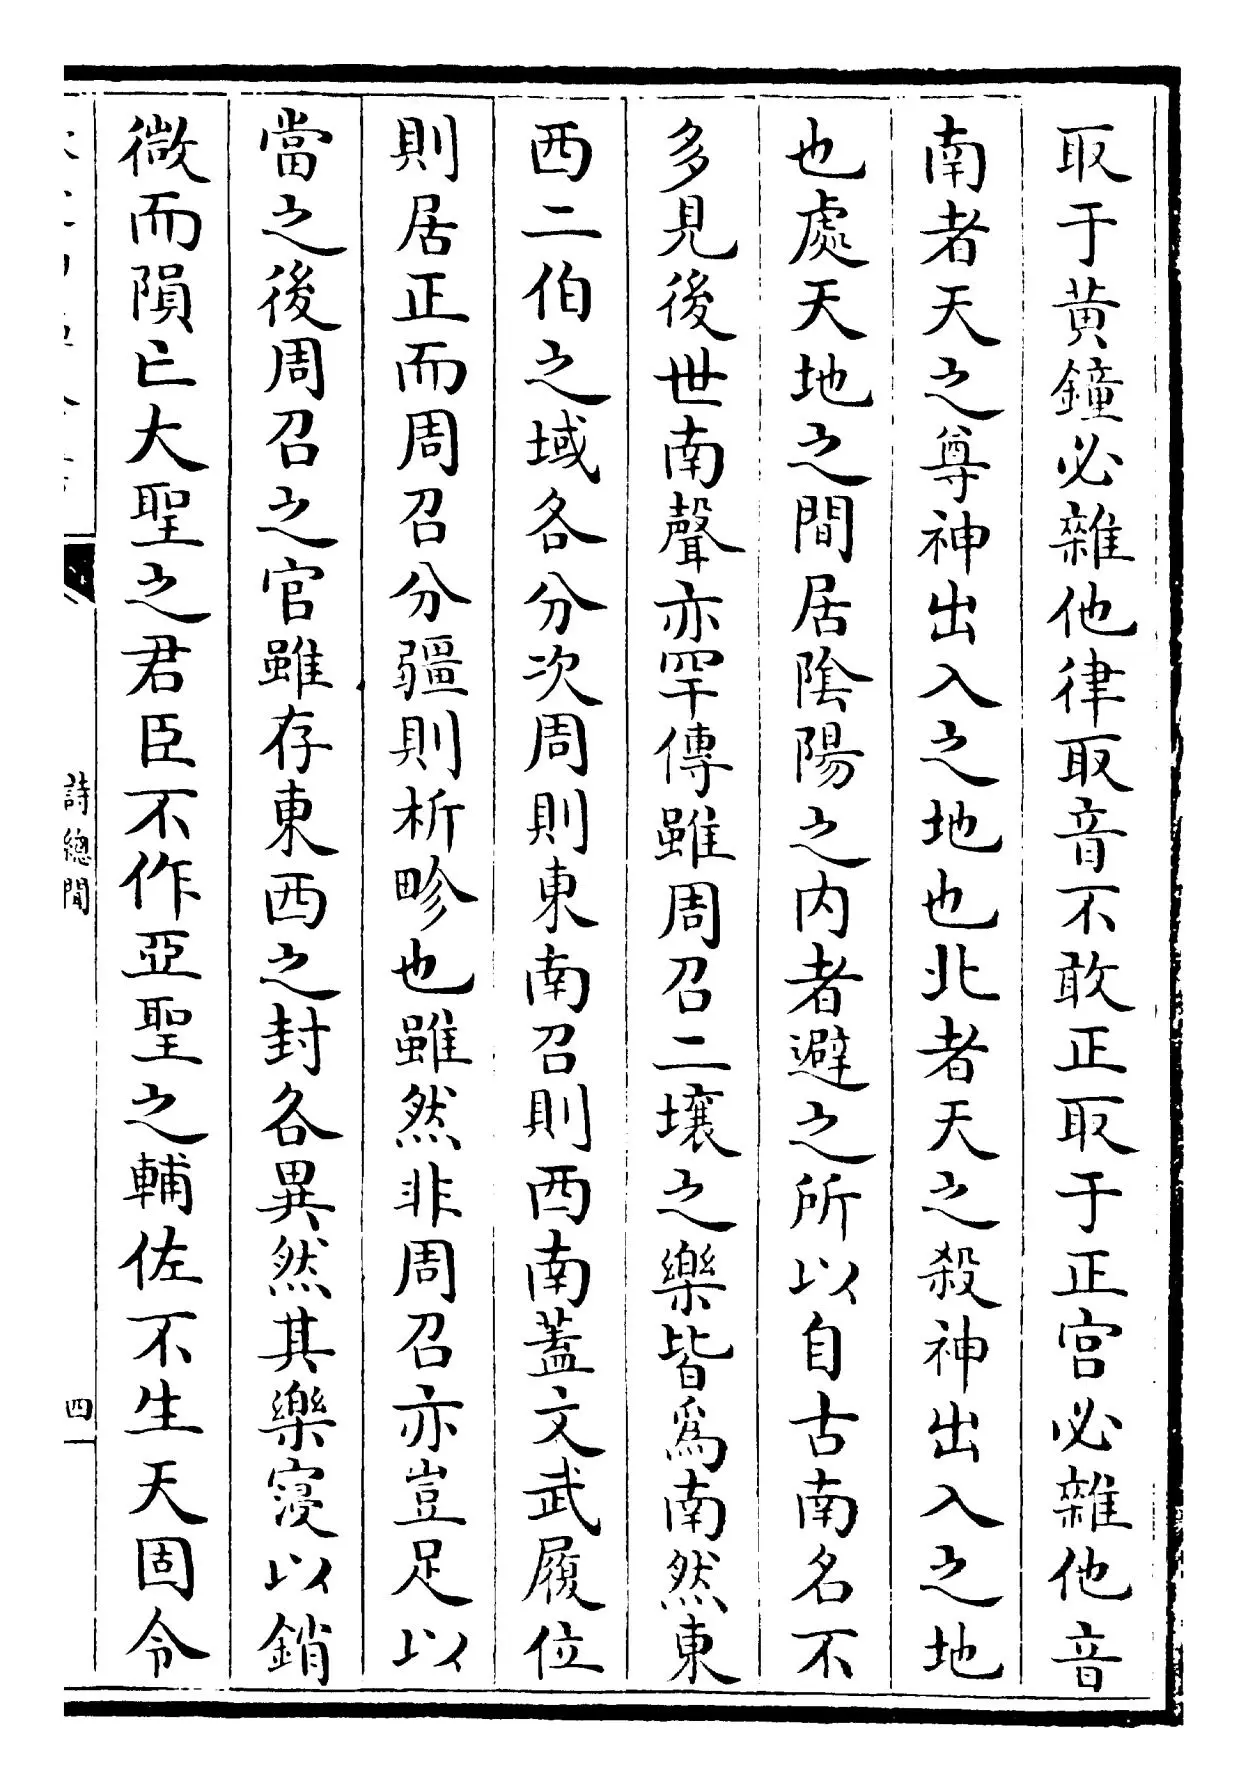 取于黃鐘必雜他律取音不敢正取于正宫必雜他音
南者天之尊神出入之地也北者天之殺神出入之地
也處天地之間居陰陽之内者避之所以自古南名不
多見後世南聲亦罕傳雖周召二壤之樂皆為南然東
西二伯之域各分次周則東南召則西南蓋文武履位
則居正而周召分疆則析畛也雖然非周召亦豈足以
當之後周召之官雖存東西之封各異然其樂寖以銷
微而隕亡大聖之君臣不作亞聖之輔佐不生天固令
詩總聞
四